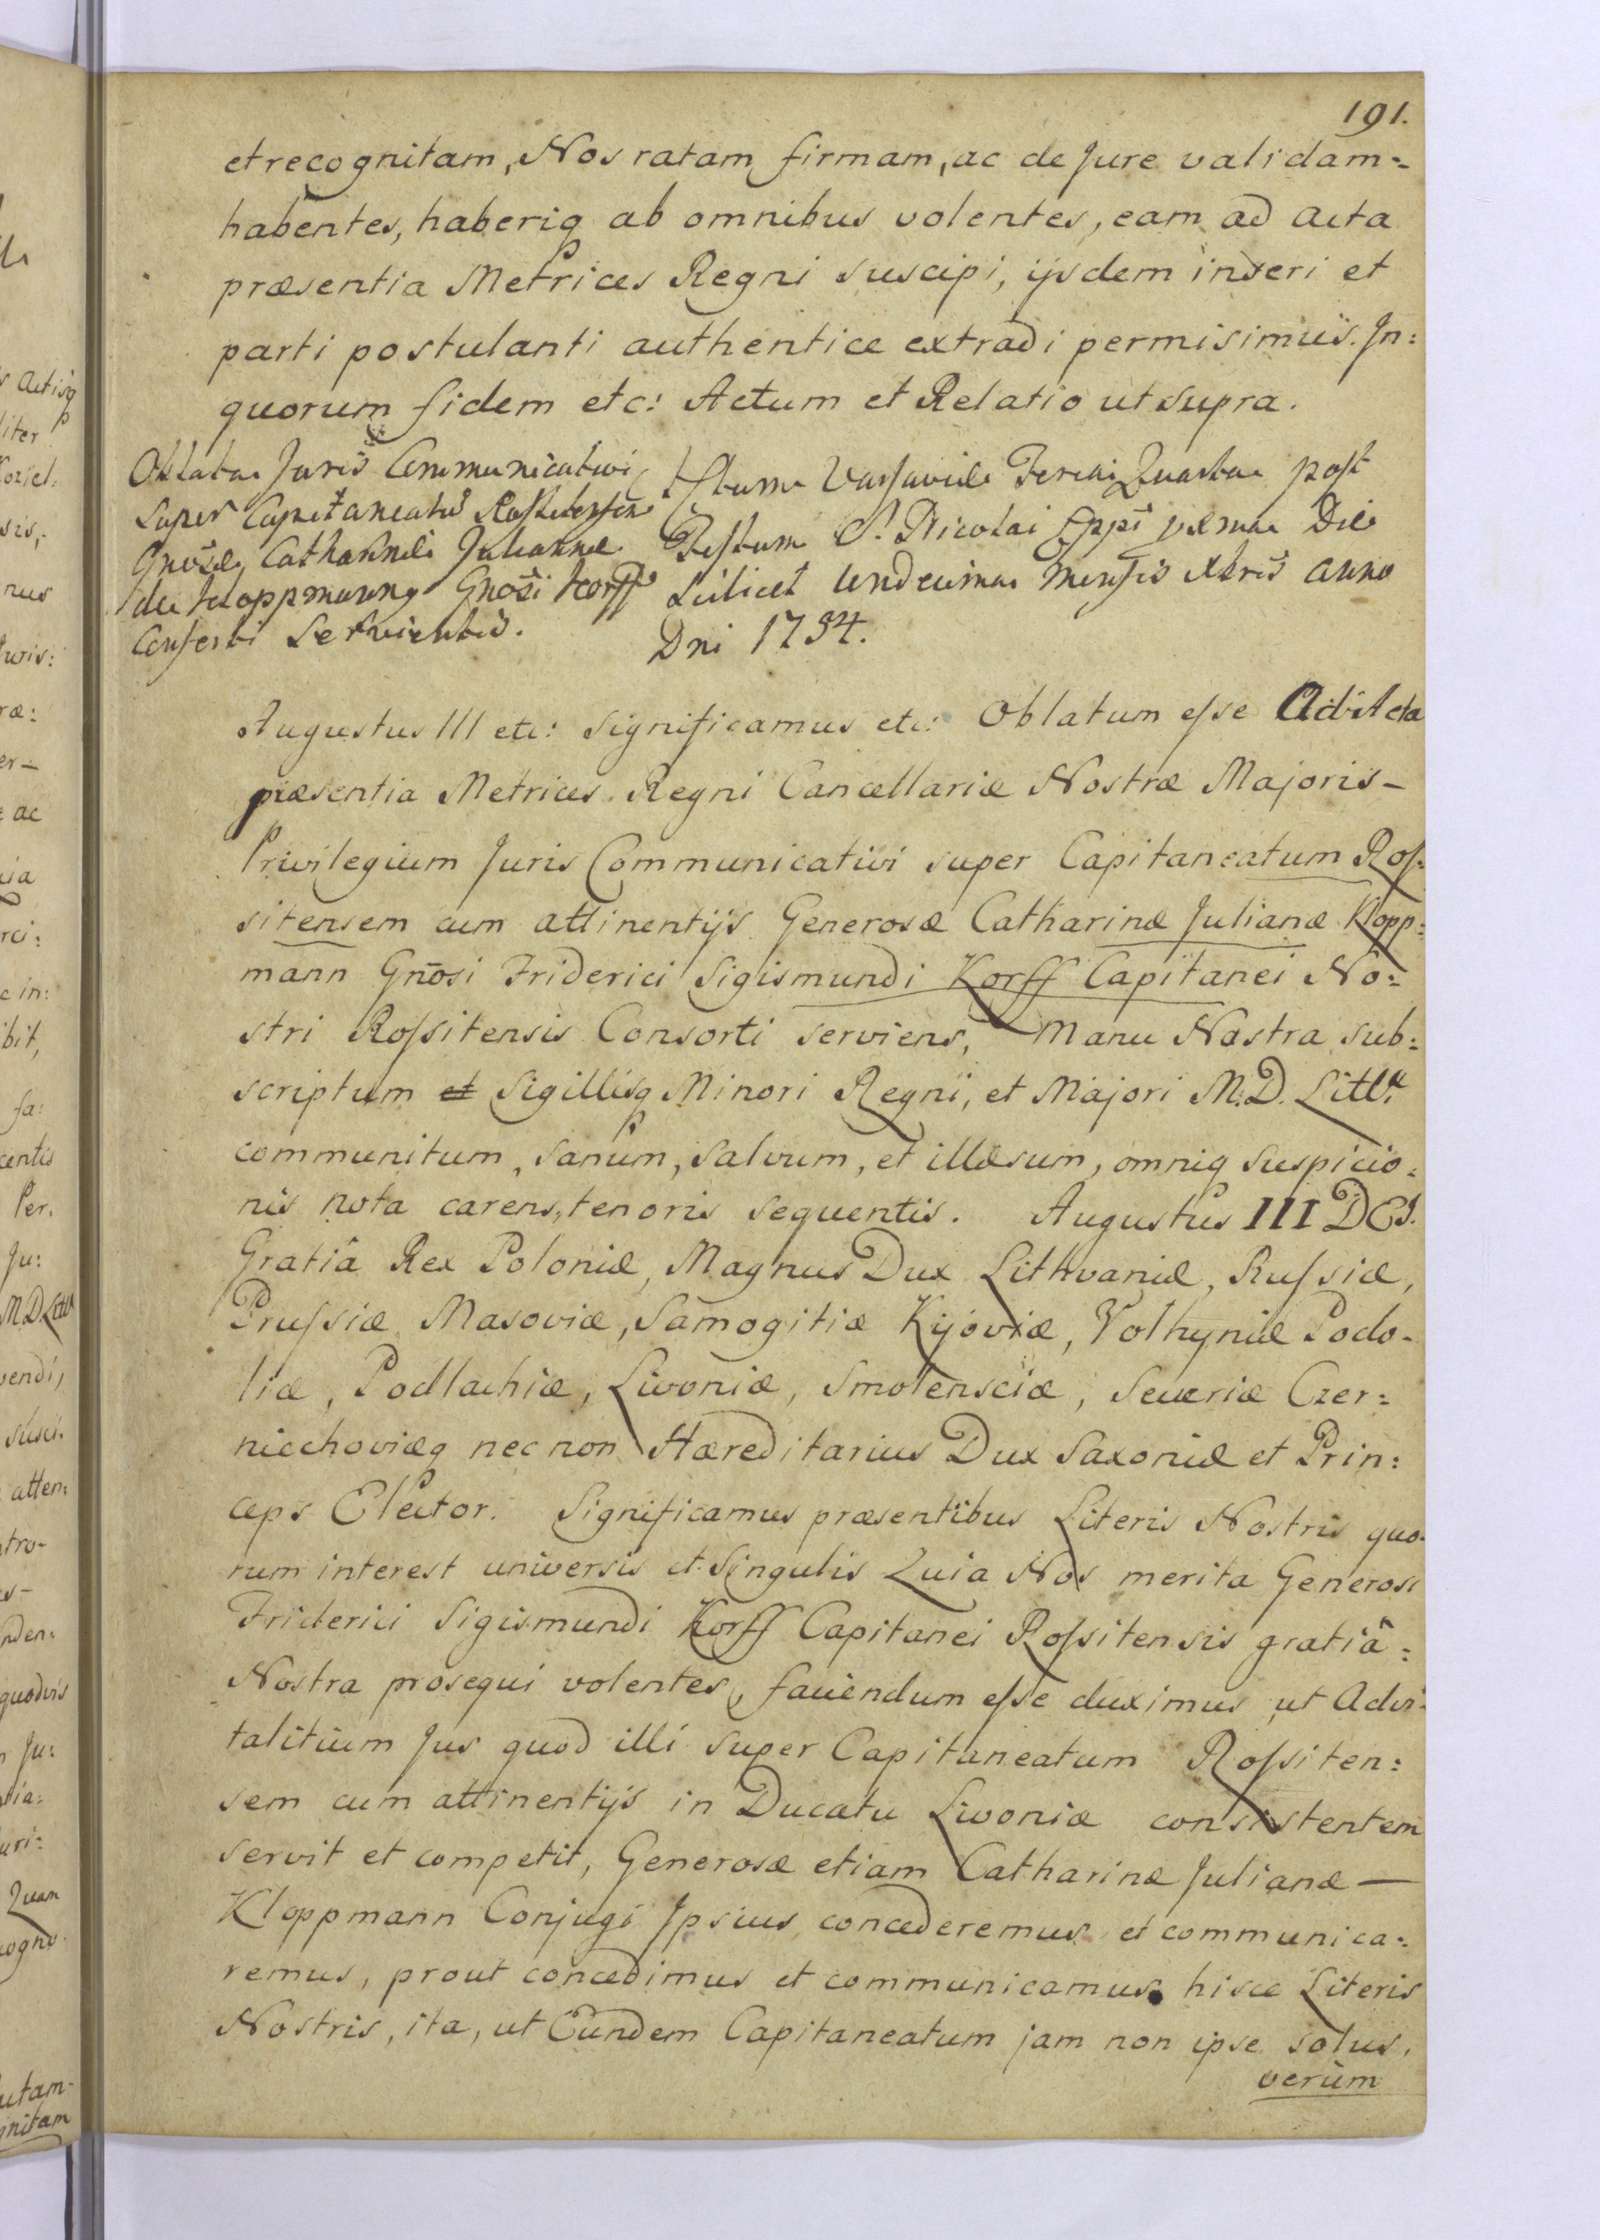 191.
et recognitam, Nos ratam firmam, ac de Jure validam=
habentes, haberiq ab omnibus volentes, eam ad Acta
præsentia Metrices Regni suscipi, ijsdem inseri et
parti postulanti authentice extradi permisimus. In:
quorum fidem etc: Actum et Relatio ut supra.
Oblata Juris Communicativi
super Capitaneatu Rossitensem
Gnosæ Catharinæ Julianæ
de Kloppmanng Gnosi Korff
Consorti Servientis.
Actum Varsaviæ Feria Quarta post
Festum S. Nicolai Eppi proxima Die
Scilicet Undecima Mensis Xbris Anno
Dni 1734.
Augustus III etc: Significamus etc: Oblatum esse Ad Acta
præsentia Metrices Regni Cancellariæ Nostræ Majoris-
Privilegium Juris Communicativi super Capitaneatum Ros-
sitensem cum attinentijs Generosæ Catharinæ Julianæ Klopp:
mann Gnosi Friderici Sigismundi Korff Capitanei No:
stri Rossitensis Consorti serviens, Manu Nostra sub:
scriptum et Sigillisq Minori Regni, et Majori M.D. Litt.
communitum, sanum, salvum, et illæsum, omniq suspicio:
nis nota carens, tenoris sequentis. Augustus III DEI.
Gratiâ Rex Poloniæ, Magnus Dux Lithvaniæ, Russiæ,
Prussiæ Masoviæ, Samogitiæ Kijoviæ, Volhyniæ Podo-
liæ, Podlachiæ, Livoniæ, Smolensciæ, Severiæ Czer:
niechoviæq nec non Hæreditarius Dux Saxoniæ et Prin:
ceps Elector. Significamus præsentibus Literis Nostris quo-
rum interest universis et Singulis Quia Nos merita Generosi
Friderici Sigismundi Korff Capitanei Rossitensis gratiâ:
Nostra prosequi volentes, favendum esse duximus, ut Advi-
talitium Jus quod illi super Capitaneatum Rossiten:
sem cum attinentijs in Ducatu Livoniæ consistentem
servit et competit, Generosæ etiam Catharinæ Julianæ -
Kloppmann Conjugi Ipsius concederemus et communica:
remus, prout concedimus et communicamus hisce Literis
Nostris, ita, ut Eundem Capitaneatum jam non ipse solus,
verùm